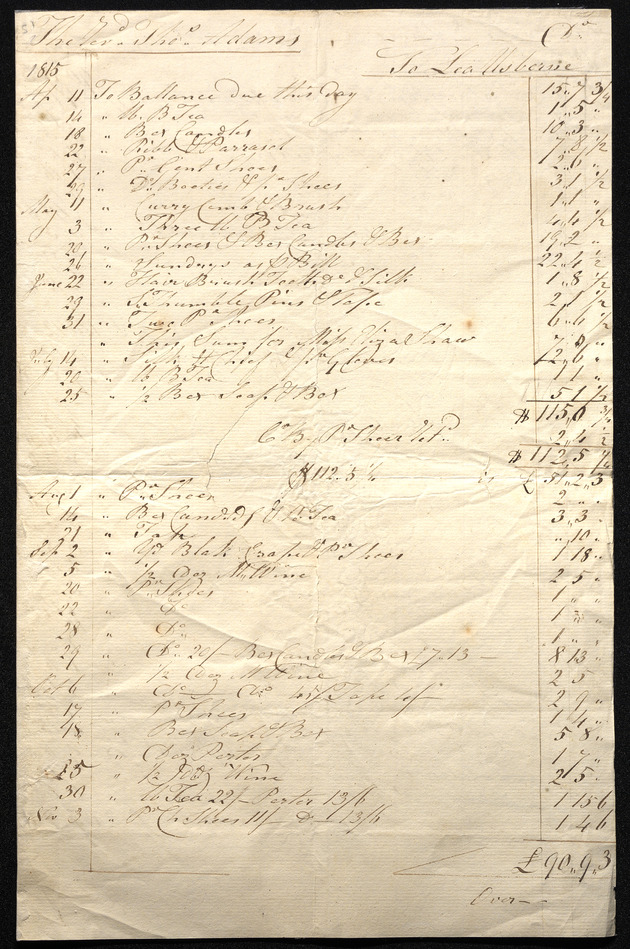 The Revd Thos Adams Dr
To Lea Usborne
1815
Ap 11 To Ballance due this day 15 " 7 3/4
14 " lb B Tea 1 " 5 "
18 " Box Candles 10 " 3 "
22 " Ribb & Parrasol 7 " 8 1/2
27 " Pr Gent Shoes 2 " 6 "
29 " Do Booties & pr Shoes 3 " 1 1/2
May 11 " Curry Comb & Brush 1 " 1 "
3 " Three lb B Tea 4 " 4 1/2
20 " Pr Shoes & Box Candles & Box 19 " 2 "
26 " Sundrys as pr Bill 22 " 4 1/2
June 22 " Hair Brush Tooth do & Silk 1 " 8 1/2
29 " Thimble Pins & Tape 2 " 1 1/2
31 " Two Pr Shoes 6 " 6 1/2
" This Sum for Miss Eliza Shaw 7 " 8
July 14 " Silk Hchief pr Gloves 12 " 6 "
20 " lb B Tea 1 1 "
25 " 1/2 Box Soap & Box 5 1 1/2
$ 115 " 0 3/4
Cr By Pr Shoes retd 2 " 4 1/2
$ 112 " 5 1/4
$ 112.5 1/4 is £ 31 " 2 " 3
Aug 1 " Pr Shoes 2 "
14 " Box Candles & lb Tea 3 " 3 "
21 " Tape " 10 "
Sep 2 " Yd Blak Crape & Pr Shoes 1 18 "
5 " 1/2 Doz M Wine 2 5 "
20 " Pr Shoes 1 " "
22 " Do 1 " "
28 " Do 1 " "
29 " Do 20/- Box Candles & Box £7.13 - 8 13 "
" 1/2 Doz M Wine 2 5
Oct 6 " Do Do 45/ Tape 4/- 2 9 "
17 " Pr Shoes 1 4 "
18 " Box Soap & Box 5 8 "
" Doz Porter 1 7 "
25 " 1/2 Doz Wine 2 5 "
30 " lb Tea 22/- Porter 13/6 1 15 6
Nov 3 " Pr Ch Shoes 11/- Do 13/6 1 4 6
£ 90 " 9 " 3
Over -